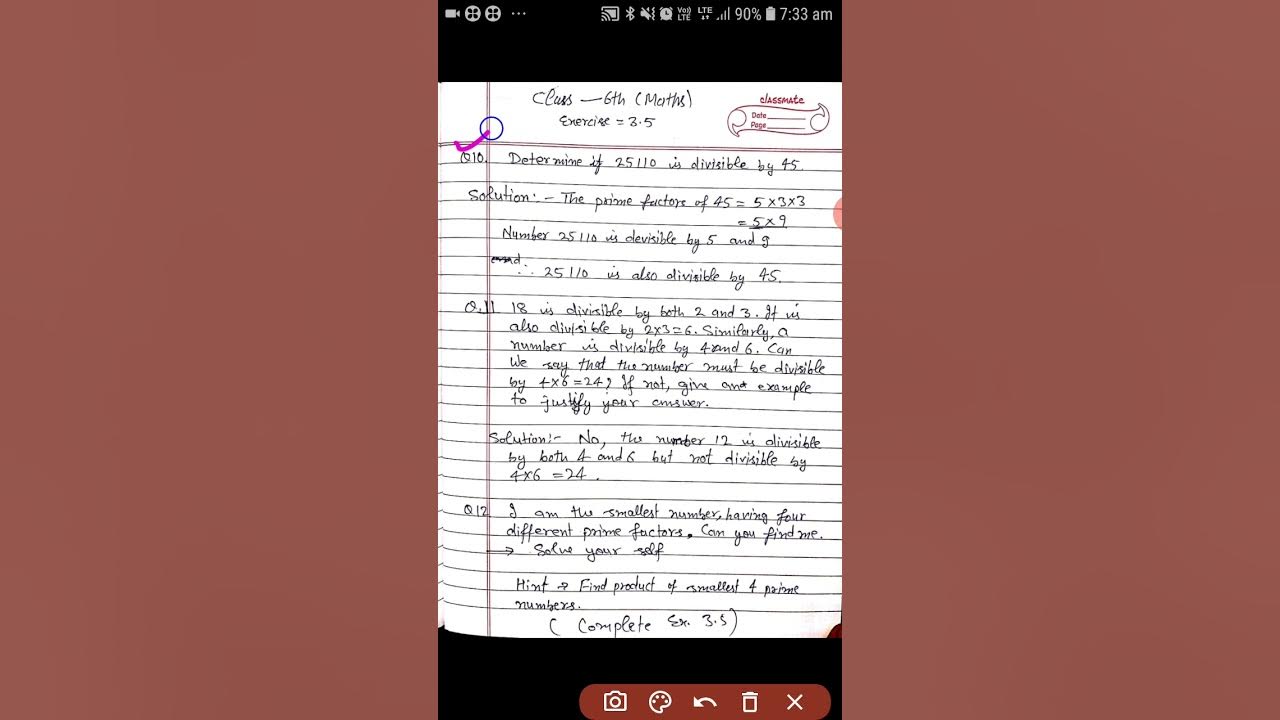 Vo)) LTE
LTE
90%
7:33 am
Class — 6th (Maths)
Exercise = 3.5
classmate
Date
Page
Q10. Determine if 25110 is divisible by 45.
Solution:- The prime factors of 45 = 5×3×3
= 5×9
Number 25110 is devisible by 5 and 9
∴ 25110 is also divisible by 45.
Q.11 18 is divisible by both 2 and 3. It is
also divisible by 2×3=6. Similarly, a
number is divisible by 4 and 6. Can
We say that the number must be divisible
by 4×6 = 24? If not, give an example
to justify your answer.
Solution:- No, the number 12 is divisible
by both 4 and 6 but not divisible by
4×6 = 24.
Q12 I am the smallest number, having four
different prime factors. Can you find me.
→ Solve your self
Hint → Find product of smallest 4 prime
numbers.
( Complete Ex. 3.5)